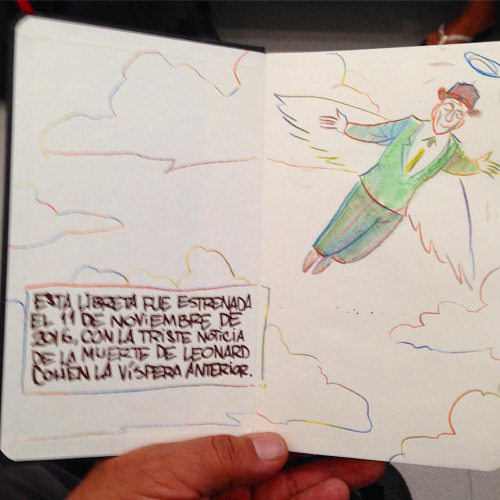 ESTA LIBRETA FUE ESTRENADA
EL 11 DE NOVIEMBRE DE
2016, CON LA TRISTE NOTICIA
DE LA MUERTE DE LEONARD
COHEN LA VÍSPERA ANTERIOR.